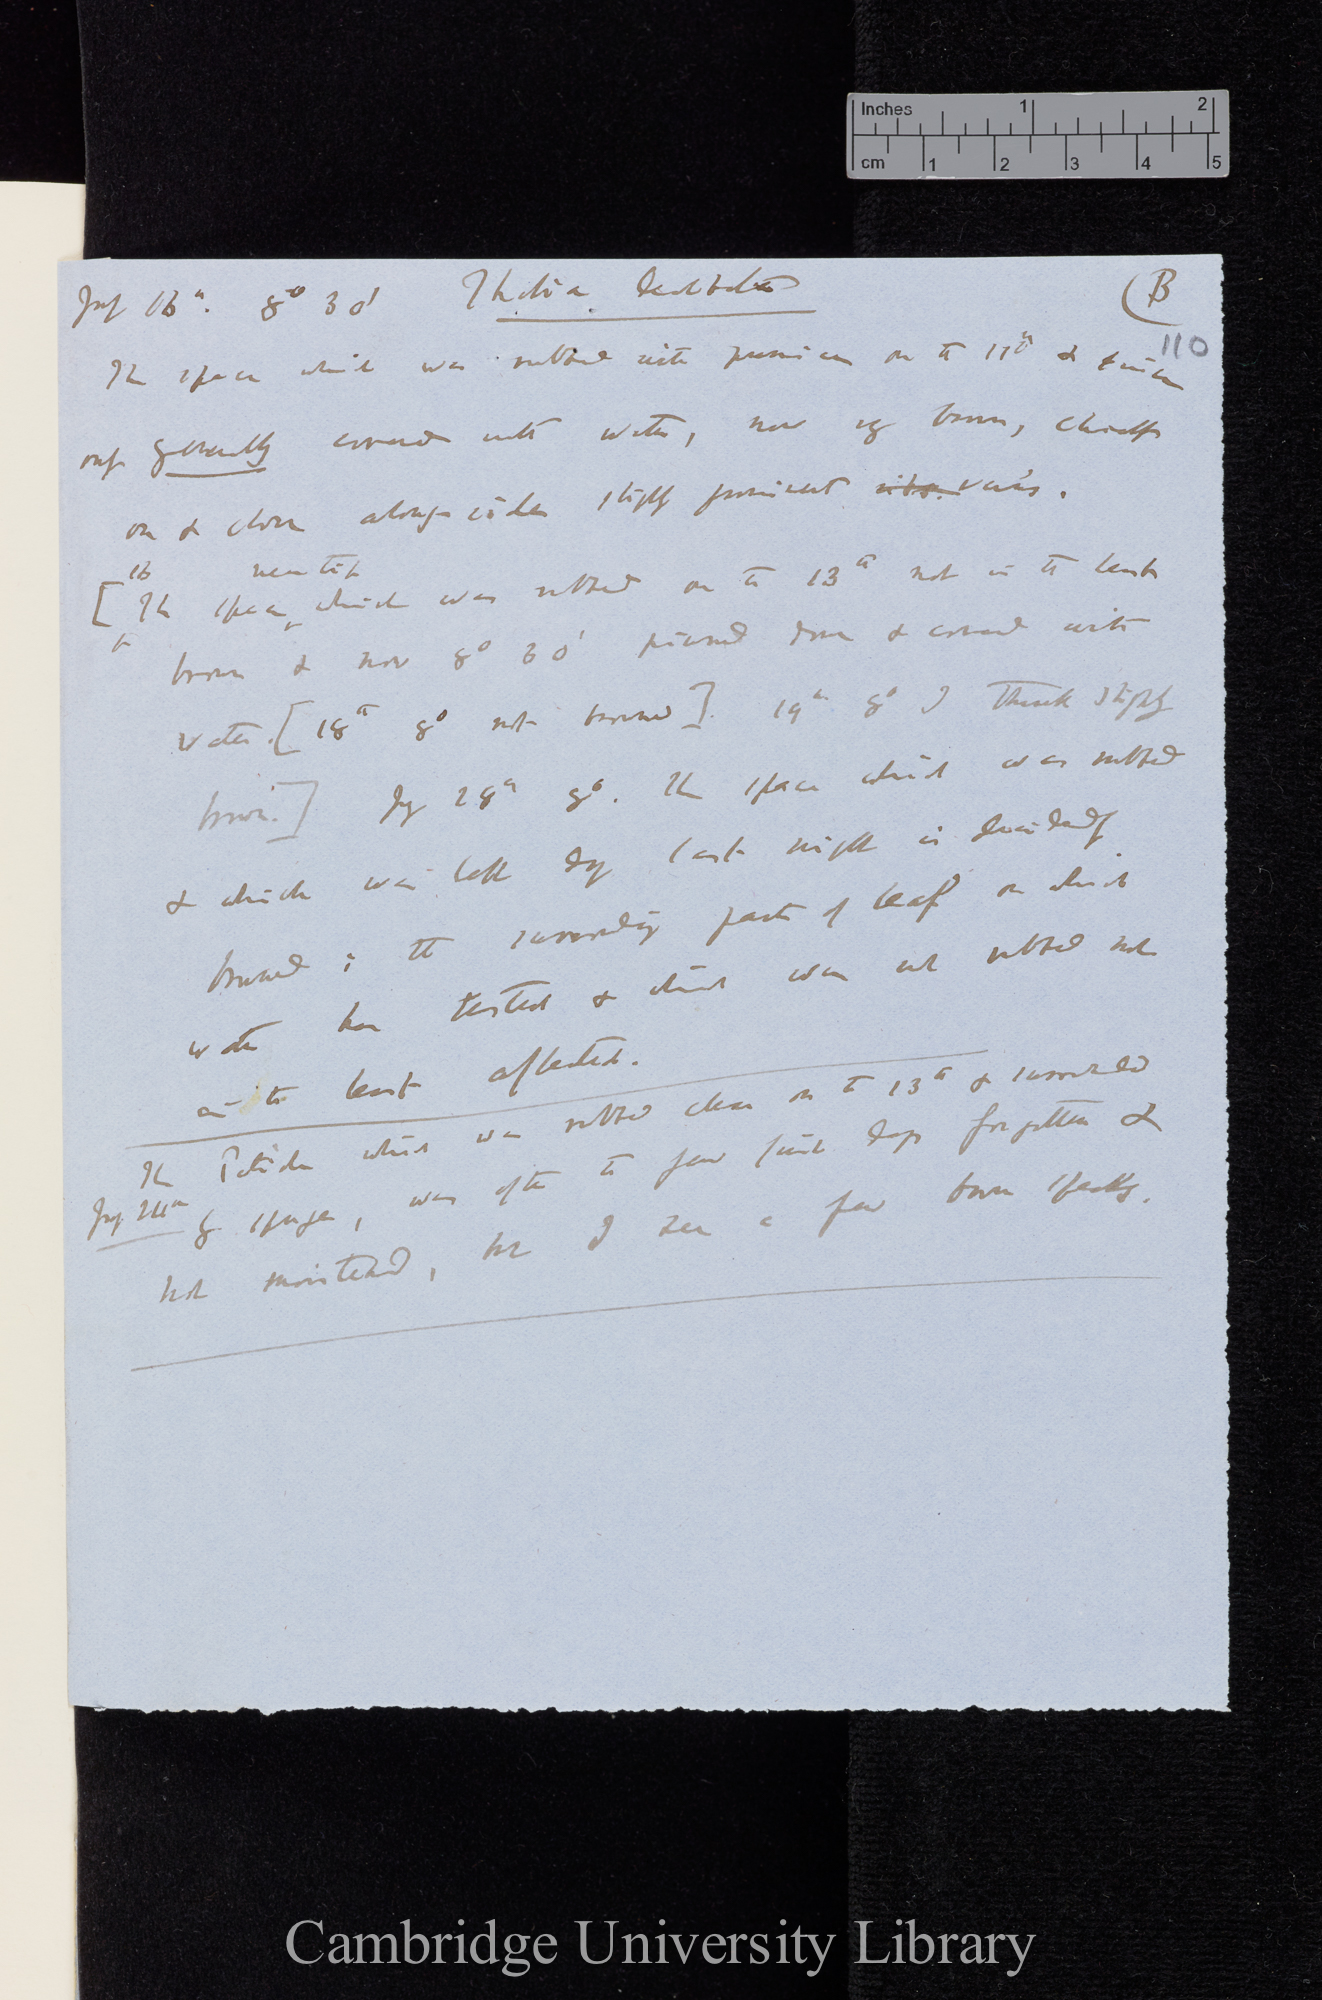 Inches 1 2
cm 1 2 3 4 5
July 16th. 8° 30' Thalia dealbata (B
110
The space which was rubbed with on the 11th & since
only generally covered with water, now is brown, chiefly
on & close alongside slightly prominent veins.
16 near tip
[The space which was rubbed on the 13th not in the least
brown & now 8° 30' pinned down & covered with
water. [18th 8° not browned] 19th 8° I think slightly
brown.] July 28th 8°. The space which was rubbed
& which was left dry last night is decidedly
browned; the surrounding parts of leaf on which
water has rested & which was not rubbed not
in the least affected.
The which was rubbed clean on the 13th & surrounded
July 24th by sponge, was after the few first days forgotten &
not moistened, but I see a few brown specks.
Cambridge University Library